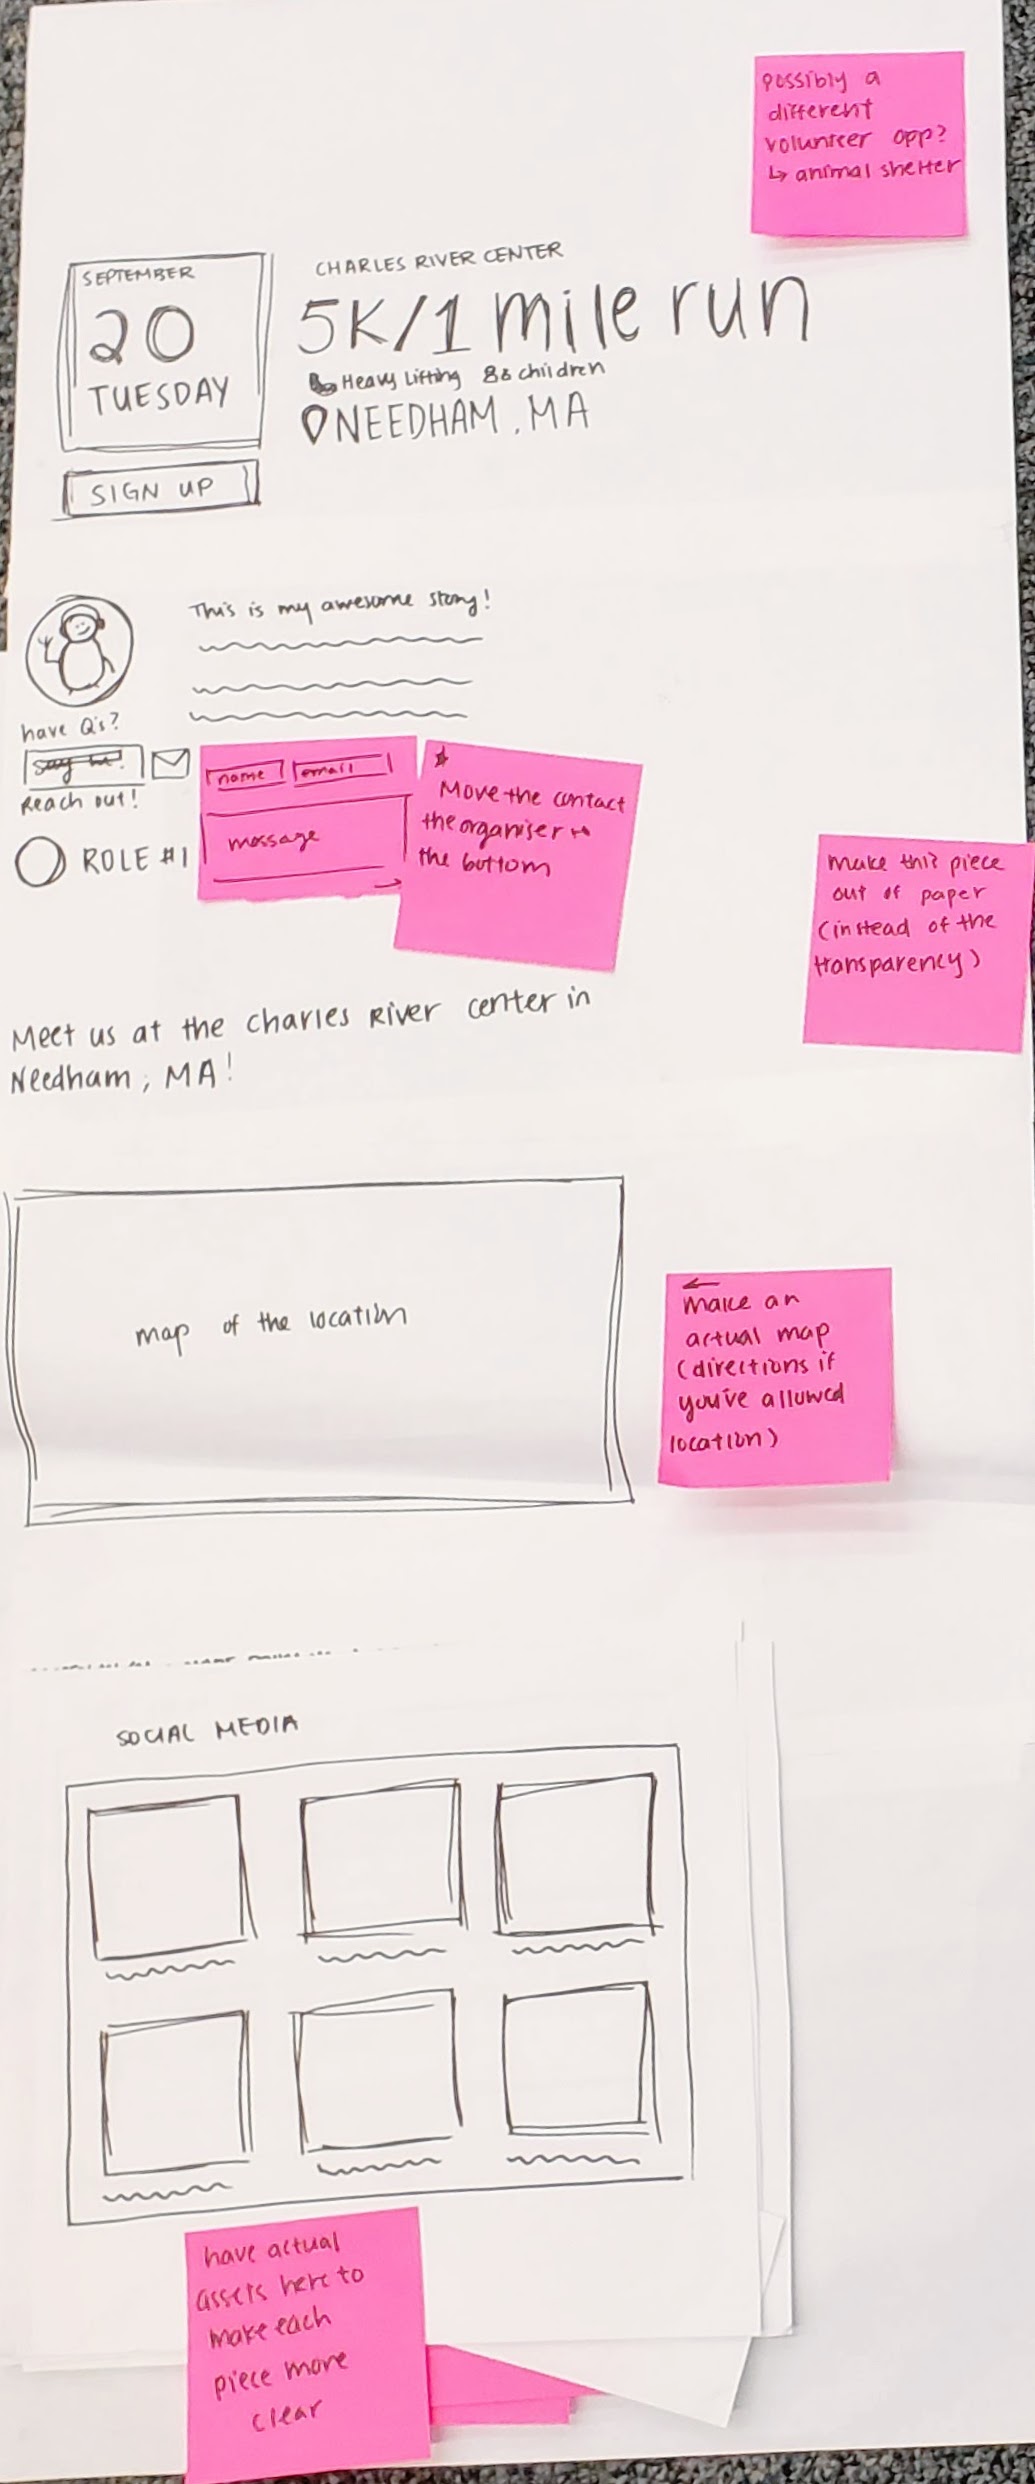 possibly a
different
volunteer opp?
↳ animal shelter
SEPTEMBER
20
TUESDAY
SIGN UP
CHARLES RIVER CENTER
5K/1 mile run
Heavy Lifting children
NEEDHAM, MA
This is my awesome story!
have Q's?
say hi!
Reach out!
name email
message
★
Move the contact
the organiser to
the bottom
ROLE #1
make this piece
out of paper
(instead of the
transparency)
Meet us at the Charles River center in
Needham, MA!
map of the location
←
make an
actual map
(directions if
you've allowed
location)
SOCIAL MEDIA
have actual
assets here to
make each
piece more
clear